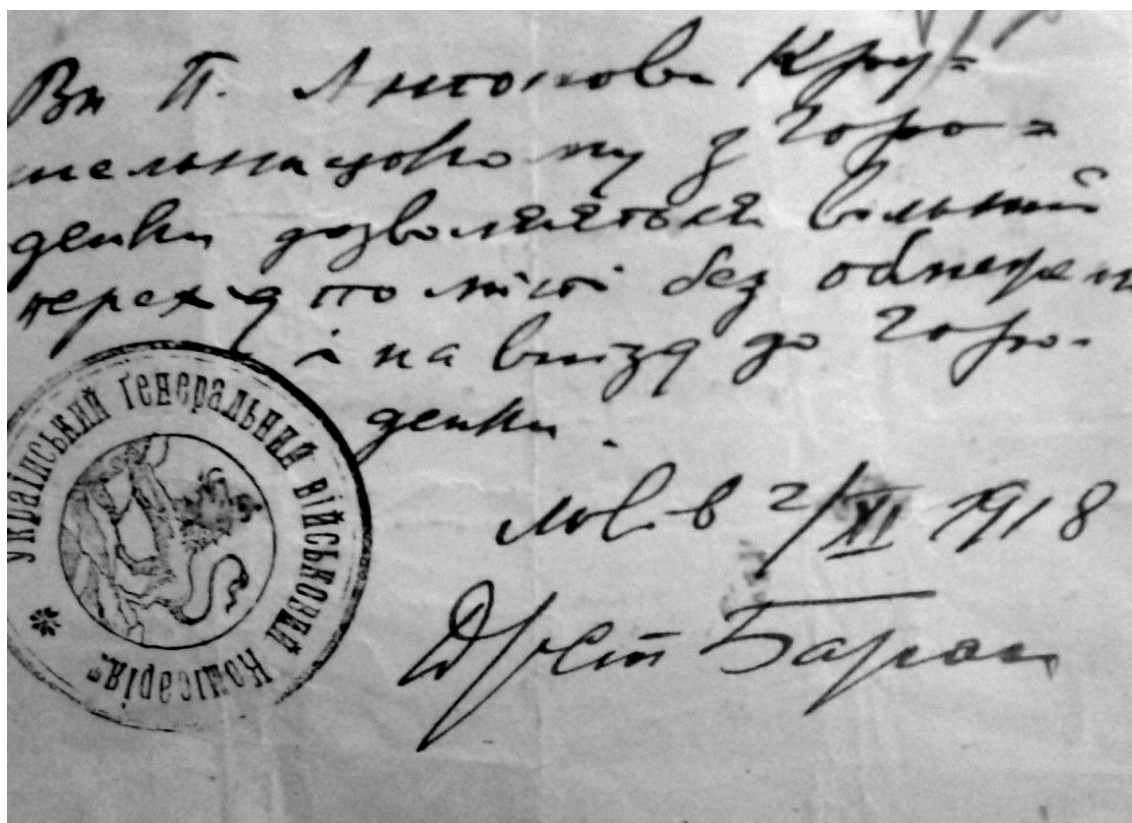 Вп П. Антонови Кру=
шельницькому з Горо=
денки дозволяється вільний
перехід по місті без обмежень
і на виїзд до Горо-
денки.
Львів 2/XI 1918
Орест Баран
Український Ґенеральний Військовий Комісарія